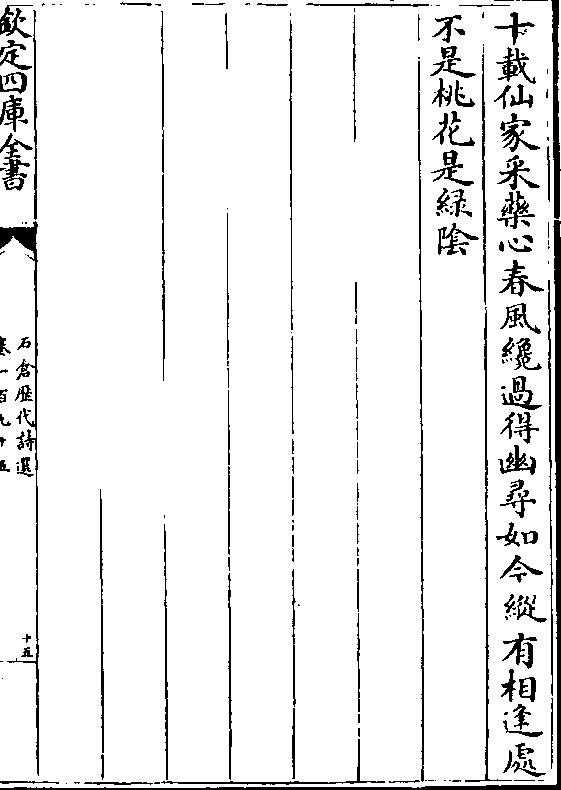 十載仙家采藥心春風纔過得幽尋如今縱有相逢處
不是桃花是綠陰
欽定四庫全書
石倉歴代詩選
卷一百九十五
十五